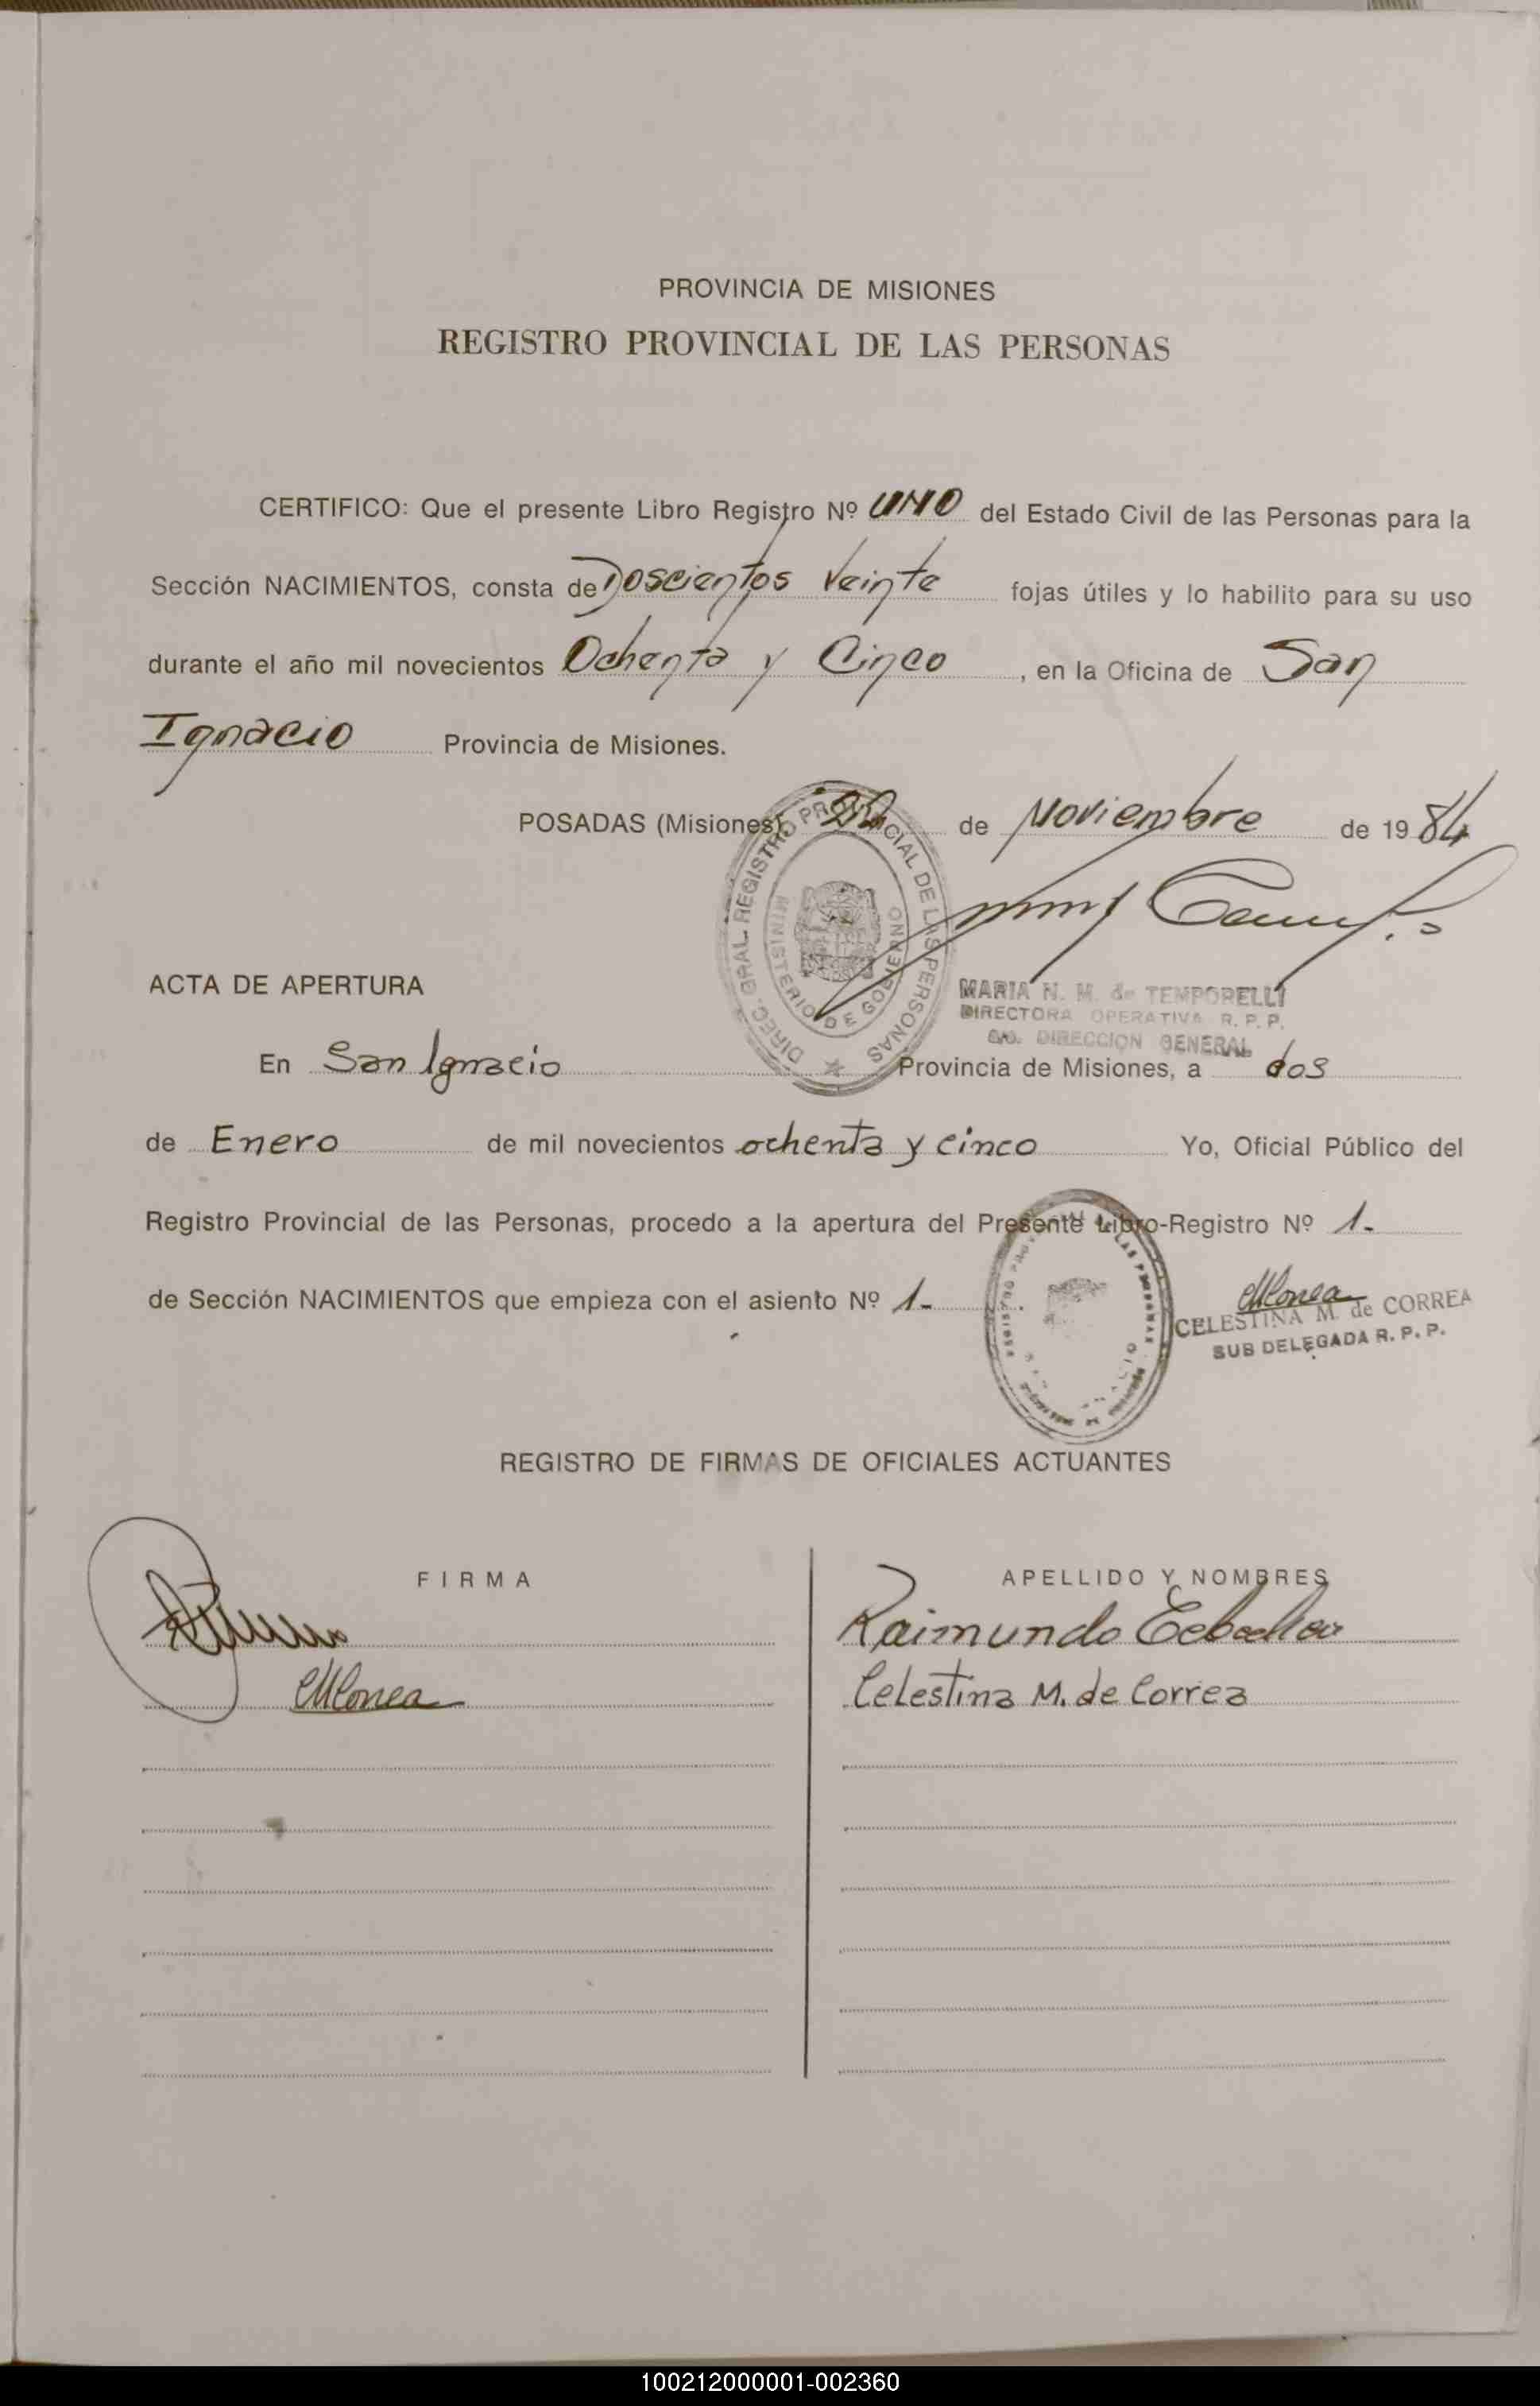 PROVINCIA DE MISIONES
REGISTRO PROVINCIAL DE LAS PERSONAS
CERTIFICO: Que el presente Libro Registro Nº UNO del Estado Civil de las Personas para la
Sección NACIMIENTOS, consta de Doscientos Veinte fojas útiles y lo habilito para su uso
durante el año mil novecientos Ochenta y Cinco, en la Oficina de San
Ignacio Provincia de Misiones.
POSADAS (Misiones), 22 de Noviembre de 1984
DIREC. GRAL. REGISTRO PROVINCIAL DE LAS PERSONAS
MINISTERIO DE GOBIERNO
MARIA N. M. de TEMPORELLI
DIRECTORA OPERATIVA R. P. P.
DIRECCION GENERAL
ACTA DE APERTURA
En San Ignacio Provincia de Misiones, a dos
de Enero de mil novecientos ochenta y cinco Yo, Oficial Público del
Registro Provincial de las Personas, procedo a la apertura del Presente Libro-Registro Nº 1.
de Sección NACIMIENTOS que empieza con el asiento Nº 1-
CELESTINA M. de CORREA
SUB DELEGADA R. P. P.
REGISTRO DE FIRMAS DE OFICIALES ACTUANTES
FIRMA APELLIDO Y NOMBRES
Raimundo
Celestina M. de Correa
100212000001-002360